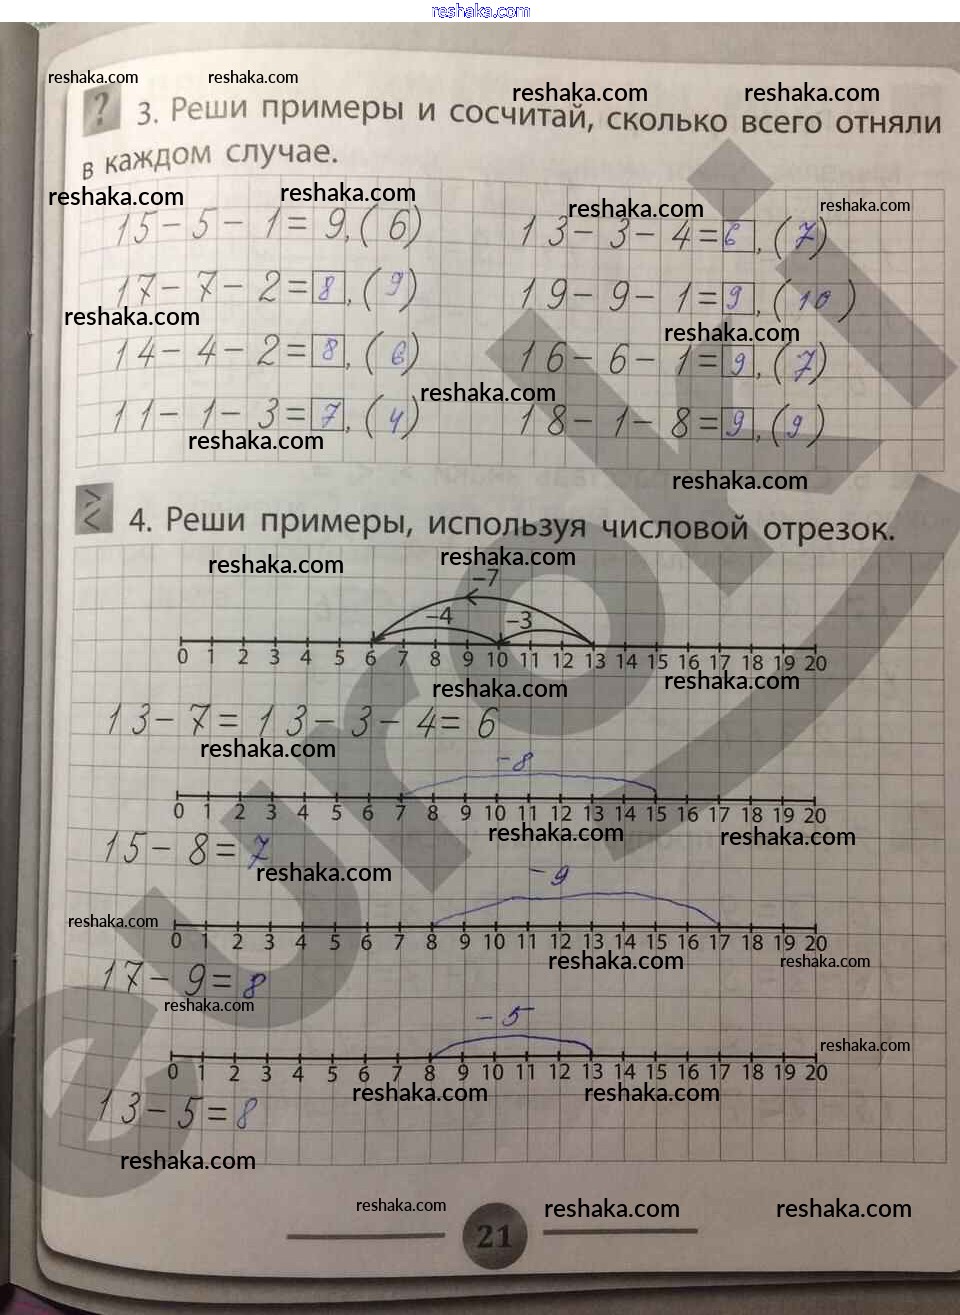 reshaka.com
reshaka.com reshaka.com reshaka.com reshaka.com
? 3. Реши примеры и сосчитай, сколько всего отняли
в каждом случае.
reshaka.com reshaka.com reshaka.com reshaka.com
15 - 5 - 1 = 9, (6) 13 - 3 - 4 = 6, (7)
17 - 7 - 2 = 8, (9) 19 - 9 - 1 = 9, (10)
reshaka.com reshaka.com
14 - 4 - 2 = 8, (6) 16 - 6 - 1 = 9, (7)
reshaka.com
11 - 1 - 3 = 7, (4) 18 - 1 - 8 = 9, (9)
reshaka.com
reshaka.com
> < 4. Реши примеры, используя числовой отрезок.
reshaka.com reshaka.com
-7
-4 -3
0 1 2 3 4 5 6 7 8 9 10 11 12 13 14 15 16 17 18 19 20
reshaka.com reshaka.com
13 - 7 = 13 - 3 - 4 = 6
reshaka.com
-8 reshaka.com
0 1 2 3 4 5 6 7 8 9 10 11 12 13 14 15 16 17 18 19 20
reshaka.com reshaka.com
15 - 8 = 7
reshaka.com -9
reshaka.com
0 1 2 3 4 5 6 7 8 9 10 11 12 13 14 15 16 17 18 19 20
reshaka.com reshaka.com
17 - 9 = 8
reshaka.com
-5
reshaka.com
0 1 2 3 4 5 6 7 8 9 10 11 12 13 14 15 16 17 18 19 20
reshaka.com reshaka.com
13 - 5 = 8
reshaka.com
reshaka.com reshaka.com reshaka.com
21
euroki